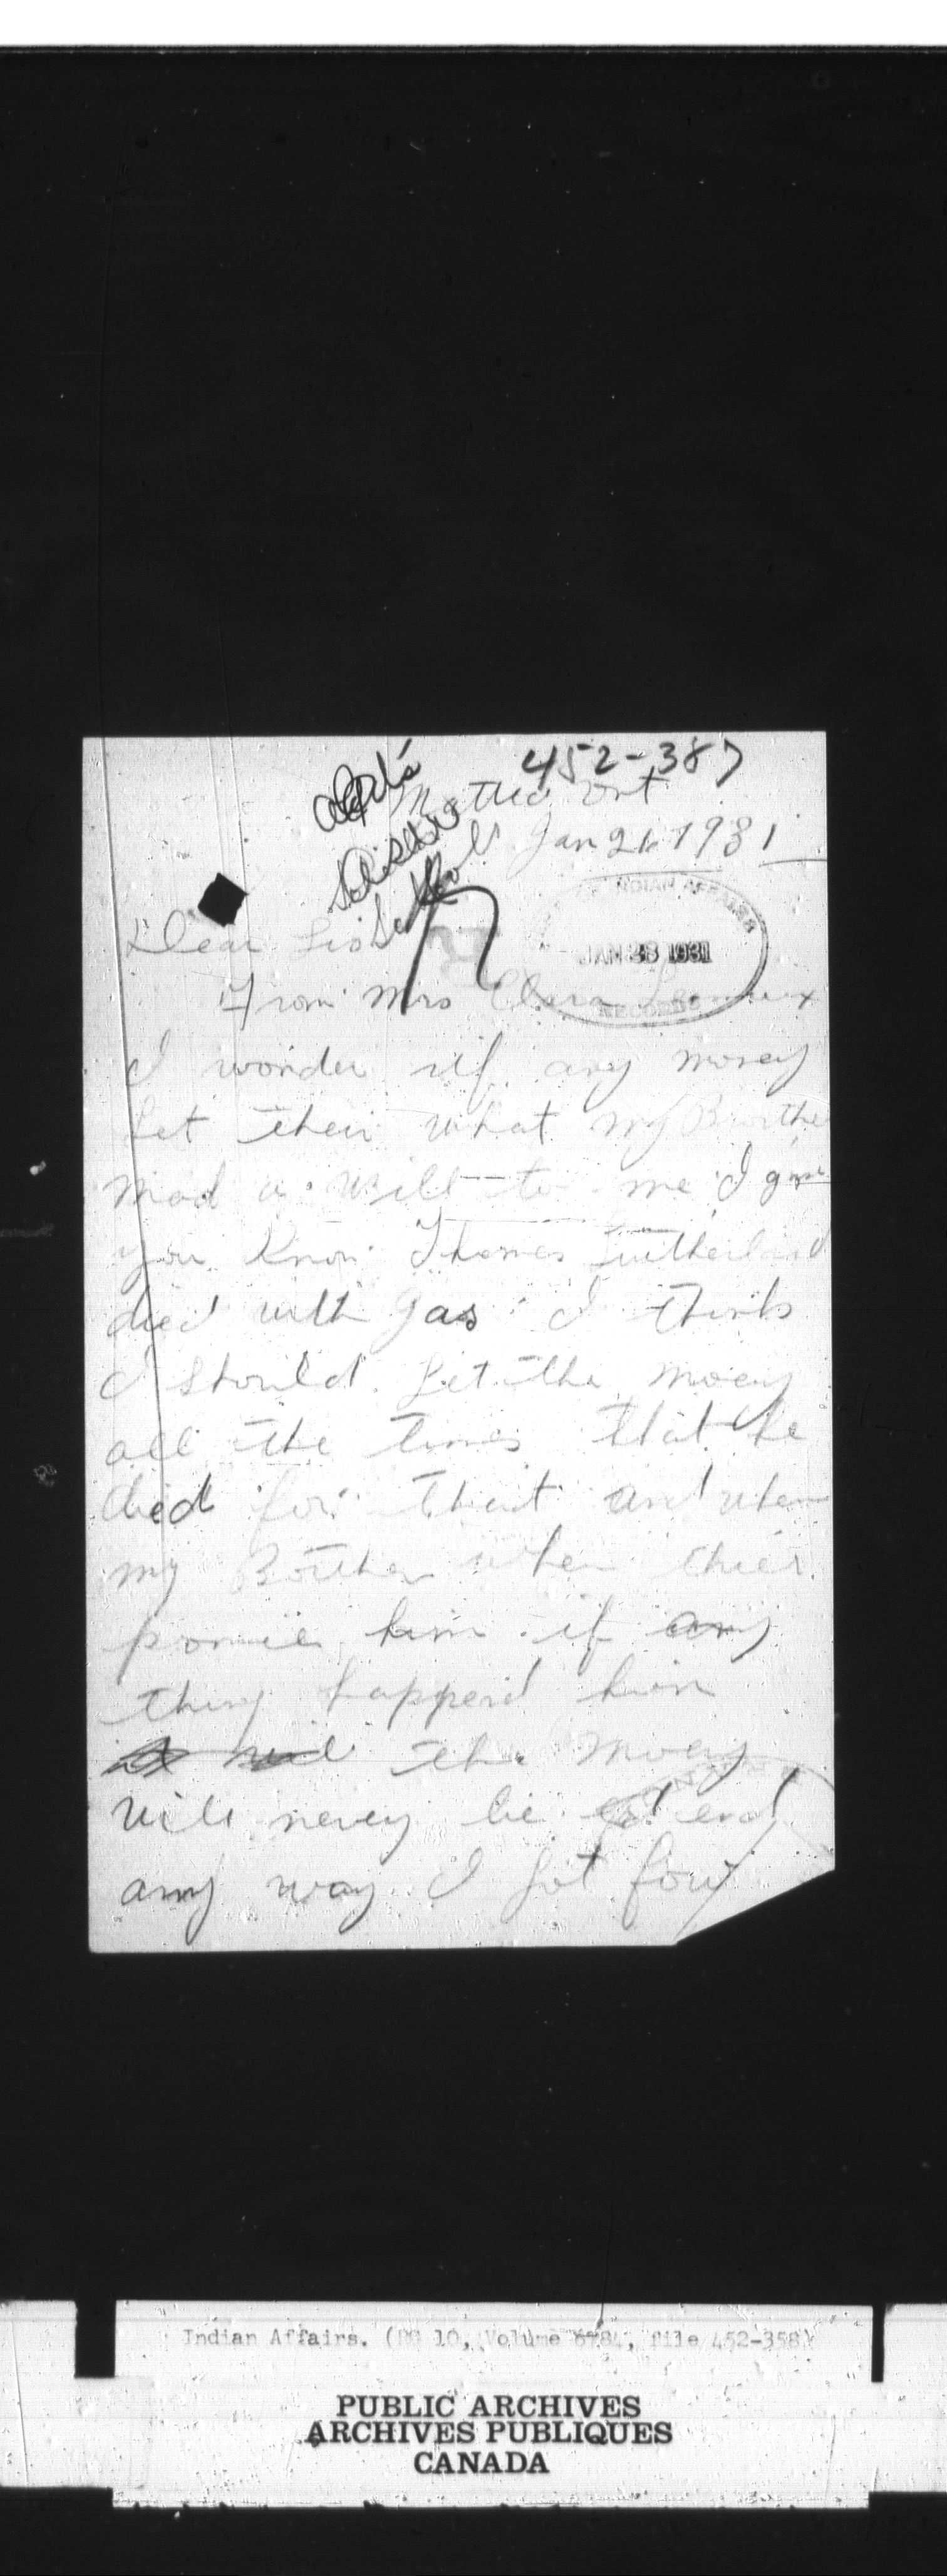 452-387
Ont
Jan 26 1931
INDIAN AFFAIRS
JAN 28 1931
RECORDS
Dear
From Mrs Clara
I wonder if any money
Let their what my Brother
mad a will to me I
you know Thomas Sutherland
died with gas I think
I should Let the moey
all the times that he
died for that and when
my Borther when
him if any
thing happend him
the moey
will nevey be end
any way I got four
Indian Affairs. (RG 10, Volume 6784, file 452-358)
PUBLIC ARCHIVES
ARCHIVES PUBLIQUES
CANADA